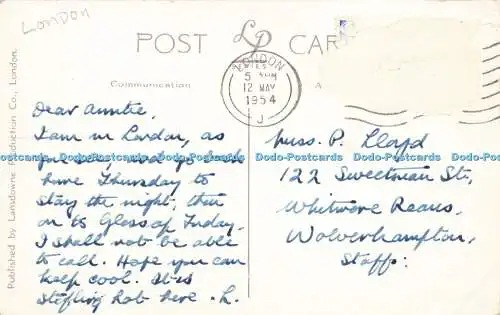 LONDON
LP
POST CARD
Communication
LONDON
5 PM
12 MAY
1954
J
Dear Auntie,
I am in London, as
have Thursday to
stay the night, then
on to Glos of Friday.
I shall not be able
to call. Hope you can
keep cool. It is
stifling hot here. L.
Miss. P. Lloyd
122 Sweetman St,
Whitmore Reans,
Wolverhampton,
Staffs:
Published by Lansdowne Production Co., London.
Dodo-Postcards Dodo-Postcards Dodo-Postcards Dodo-Postcards Dodo-Postcards